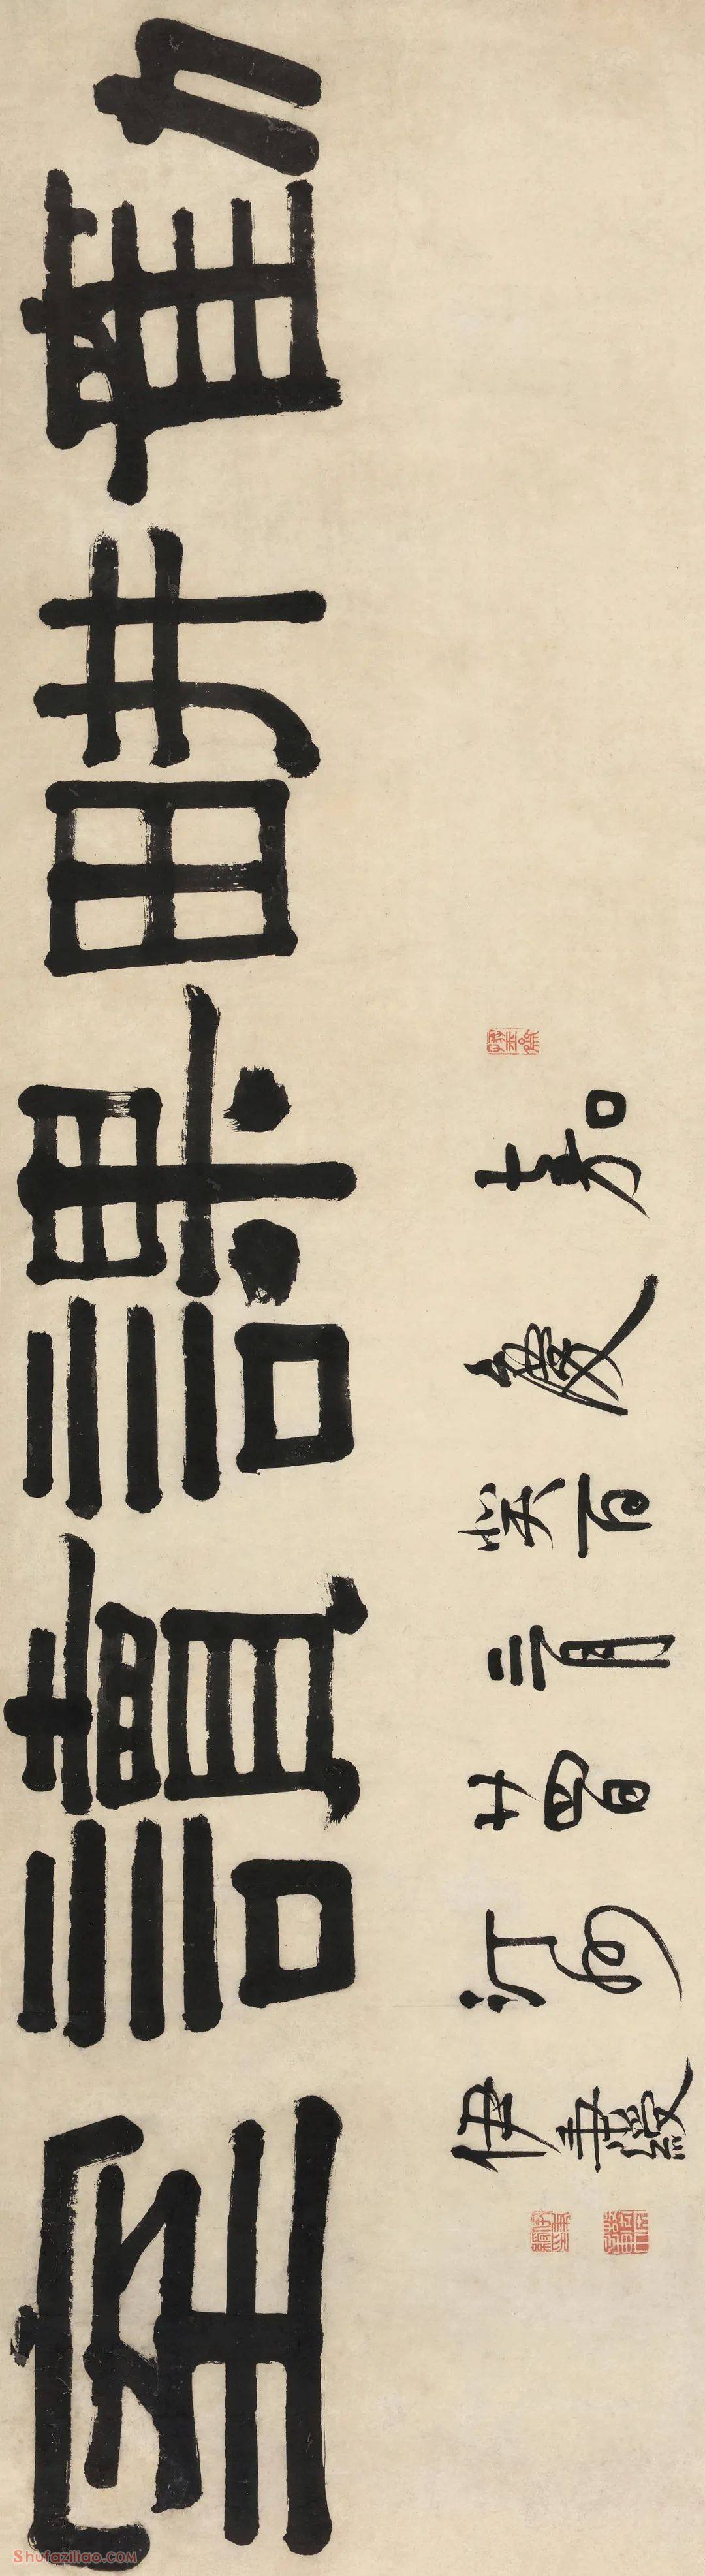 勤畊課讀室
嘉
慶
癸酉
三月
廿四日
汀州
伊秉綬
Shufaziliao.com